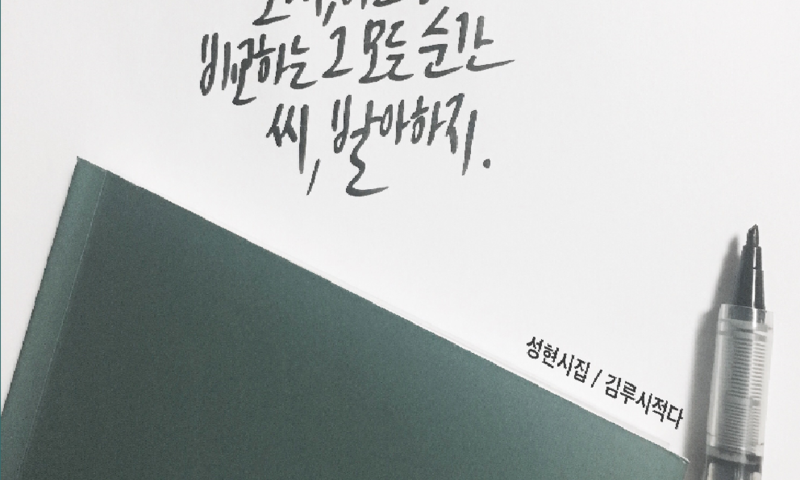 비관하는 그 모든 순간
씨, 발아하지.
성현시집 / 김루시적다